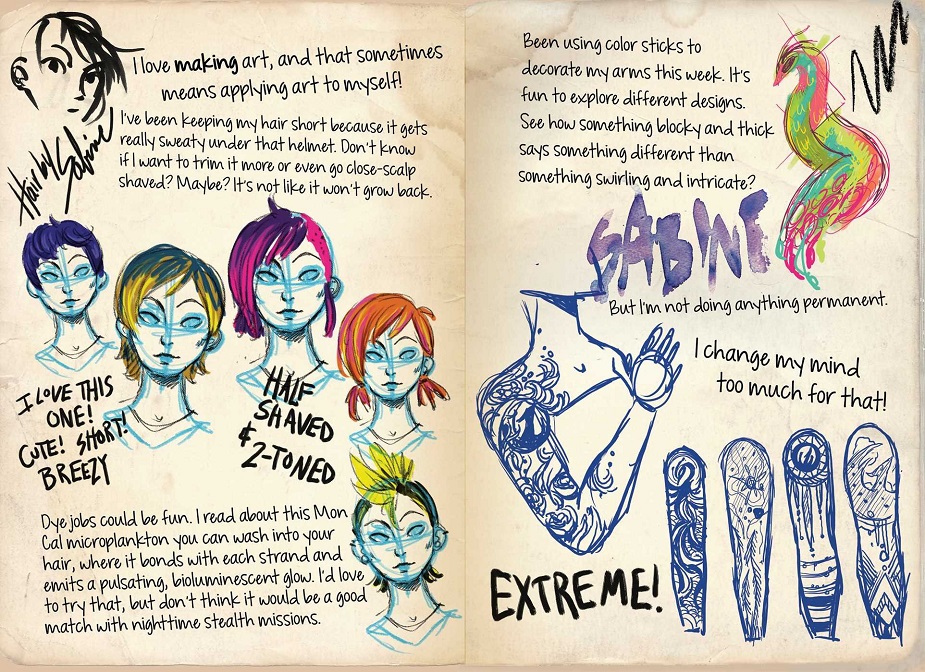 I love making art, and that sometimes
means applying art to myself!
I've been keeping my hair short because it gets
really sweaty under that helmet. Don't know
if I want to trim it more or even go close-scalp
shaved? Maybe? It's not like it won't grow back.
Hair by
Sabine
I LOVE THIS
ONE!
CUTE! SHORT!
BREEZY
HALF
SHAVED
& 2-TONED
Dye jobs could be fun. I read about this Mon
Cal microplankton you can wash into your
hair, where it bonds with each strand and
emits a pulsating, bioluminescent glow. I'd love
to try that, but don't think it would be a good
match with nighttime stealth missions.
Been using color sticks to
decorate my arms this week. It's
fun to explore different designs.
See how something blocky and thick
says something different than
something swirling and intricate?
SABINE
But I'm not doing anything permanent.
I change my mind
too much for that!
EXTREME!